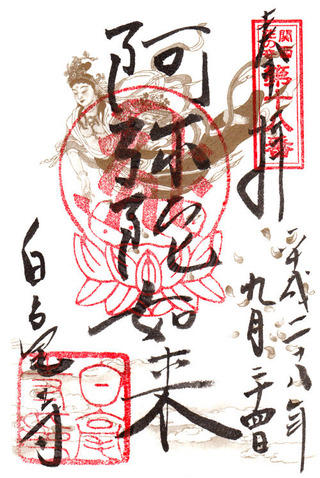 奉拝
関西花の寺
第十八番
平成二十八年
九月二十四日
阿弥陀如来
白毫寺